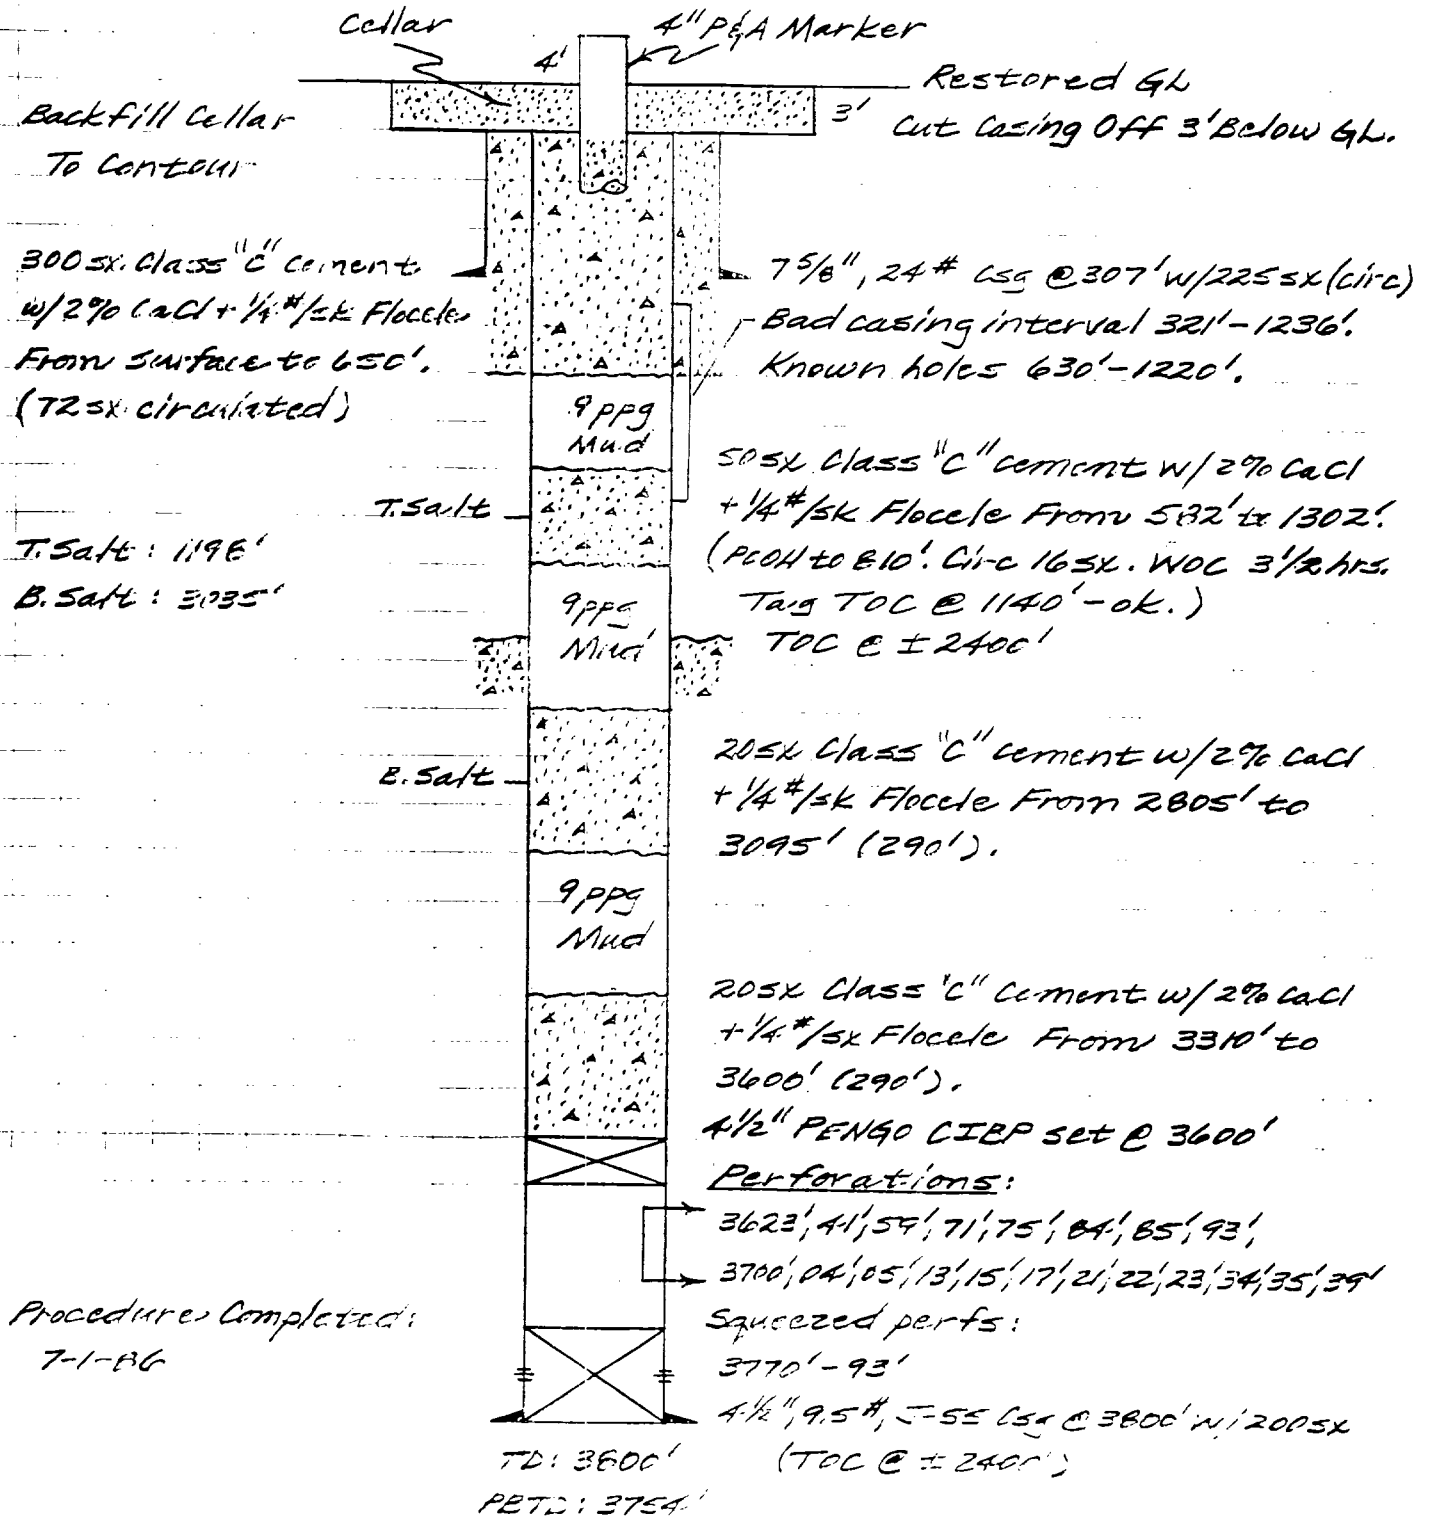 Cellar
4" P&A Marker
4'
Restored GL
3'
Cut Casing Off 3' Below GL.
Backfill Cellar
To Contour
300 sx. Class "C" cement
w/2% CaCl + 1/4 #/sk Flocele
From surface to 650'.
(72 sx circulated)
7 5/8", 24# Csg @ 307' w/225 sx (circ)
Bad casing interval 321'-1236'.
Known holes 630'-1220'.
9 ppg
Mud
50 sx Class "C" cement w/2% CaCl
+ 1/4 #/sk Flocele From 582' to 1302'.
(POOH to 810'. Circ 16 sx. WOC 3 1/2 hrs.
Tag TOC @ 1140' - ok.)
T. Salt
T. Salt: 1198'
B. Salt: 3035'
9 ppg
Mud
TOC @ ± 2400'
B. Salt
20 sx Class "C" cement w/2% CaCl
+ 1/4 #/sk Flocele From 2805' to
3095' (290').
9 ppg
Mud
20 sx Class "C" Cement w/2% CaCl
+ 1/4 #/sx Flocele From 3310' to
3600' (290').
4 1/2" PENGO CIBP set @ 3600'
Perforations:
3623', 41', 59', 71', 75', 84', 85', 93',
3700', 04', 05', 13', 15', 17', 21', 22', 23', 34', 35', 39'
Procedure Completed:
7-1-86
Squeezed perfs:
3770'-93'
4 1/2", 9.5#, J-55 Csg @ 3800' w/200 sx
(TOC @ ± 2400')
TD: 3800'
PBTD: 3754'